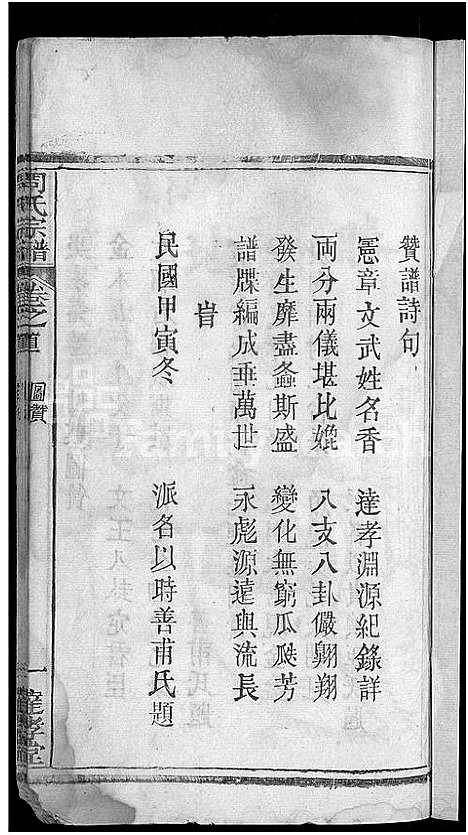 贊譜詩句
憲章文武姓名香　達孝淵源紀錄詳
兩分兩儀堪比嫓　八支八卦儼翺翔
發生靡盡螽斯盛　變化無窮瓜瓞芳
譜牒編成垂萬世　永彪源遠與流長
旹
民國甲寅冬　派名以時善甫氏題
周氏宗譜　卷之首　圖贊　一　達孝堂